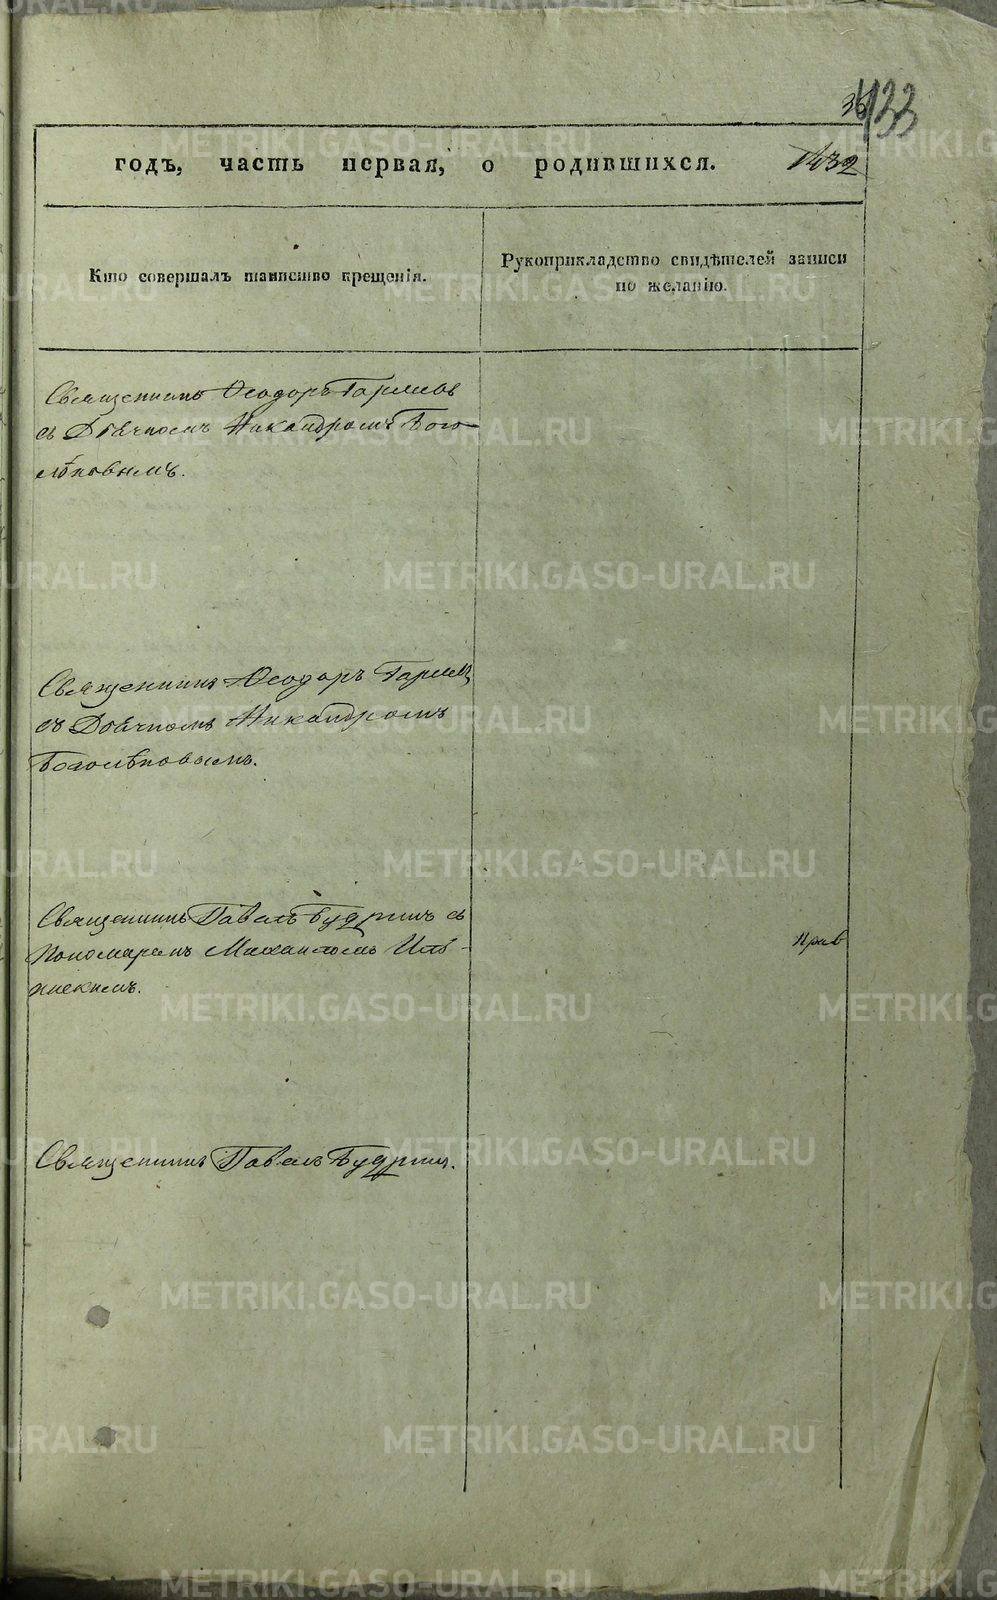 133
1432
годъ, часть первая, о родившихся.
Кто совершалъ таинство крещенія.
Рукоприкладство свидѣтелей записи
по желанію.
Священникъ Ѳеодоръ
съ Дьячкомъ Никандромъ Бого-
лѣповымъ.
Священникъ Ѳеодоръ
съ Дьячкомъ Никандромъ
Боголѣповымъ.
Священникъ Павелъ Будринъ съ
Пономаремъ Михаиломъ Иль-
инскимъ.
Священникъ Павелъ Будрин.
METRIKI.GASO-URAL.RU